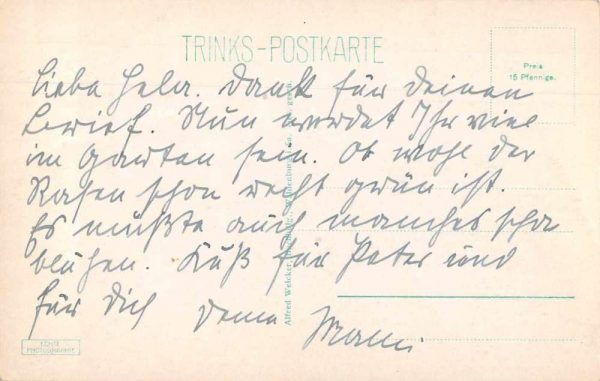 TRINKS-POSTKARTE
Preis
15 Pfennige.
Liebe Hela. Dank für Deinen
Brief. Nun werdet Ihr viel
im Garten sein. Ob wohl der
Rasen schon recht grün ist.
Es müßte auch manches schon
blühen. Kuß für Peter und
für Dich Deine Mami
Alfred Welcker,
ECHTE
PHOTOGRAPHIE